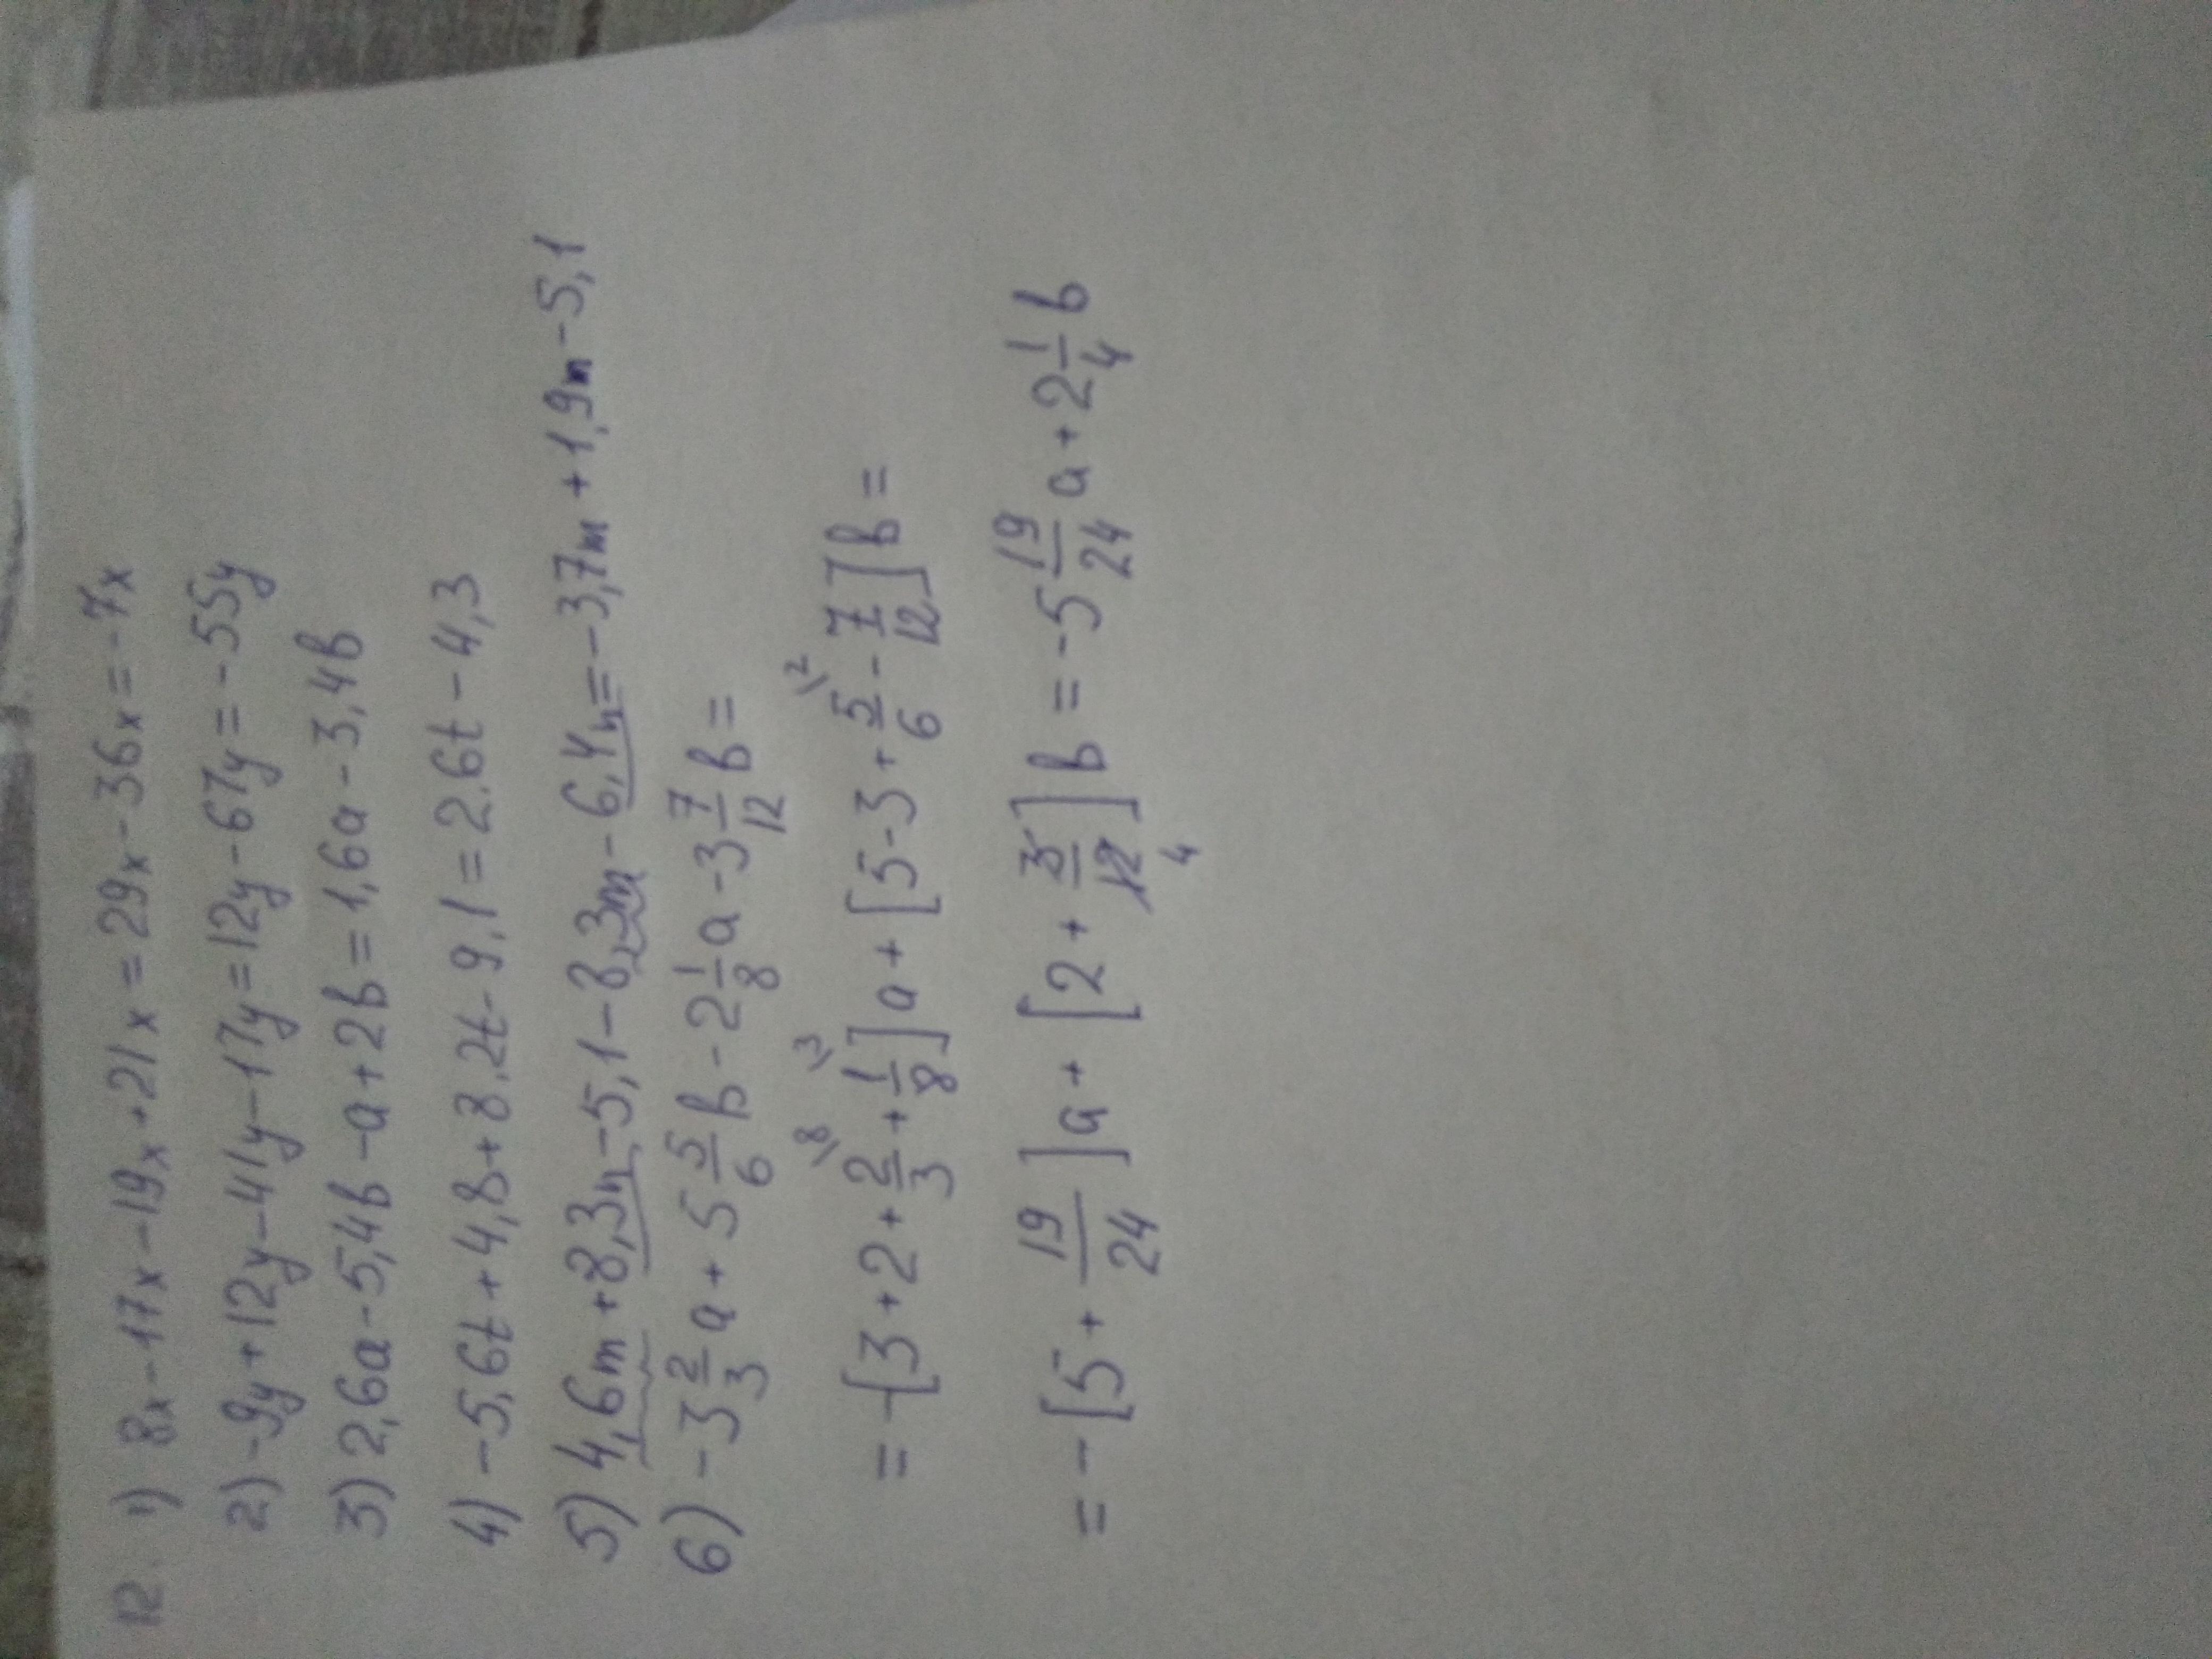 12. 1) 8x-17x-19x+21x=29x-36x=-7x
2) -9y+12y-41y-17y=12y-67y=-55y
3) 2,6a-5,4b-a+2b=1,6a-3,4b
4) -5,6t+4,8+8,2t-9,1=2,6t-4,3
5) 4,6m+8,3n-5,1-8,3m-6,4n=-3,7m+1,9n-5,1
6) -3 2/3 a + 5 5/6 b - 2 1/8 a - 3 7/12 b =
= -[3+2+ 2/3 \8 + 1/8 \3]a+[5-3+ 5/6 \2 - 7/12]b=
= -[5+ 19/24]a+[2+ 3/12 4]b = -5 19/24 a + 2 1/4 b